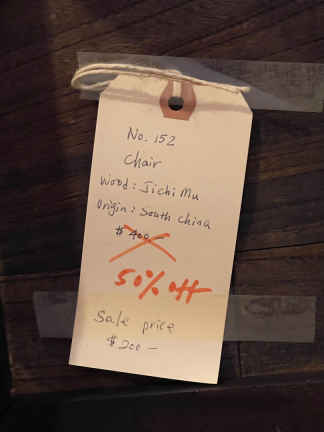 No. 152
Chair
Wood: Jichi Mu
Origin: South China
$400-
50% off
Sale price
$200-